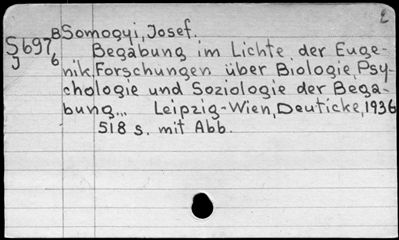 2
B Somogyi, Josef.
S697, Begabung im Lichte der Euge-
J 6 nik, Forschungen über Biologie, Psy-
chologie und Soziologie der Bega-
bung... Leipzig-Wien, Deuticke, 1936
518 s. mit Abb.